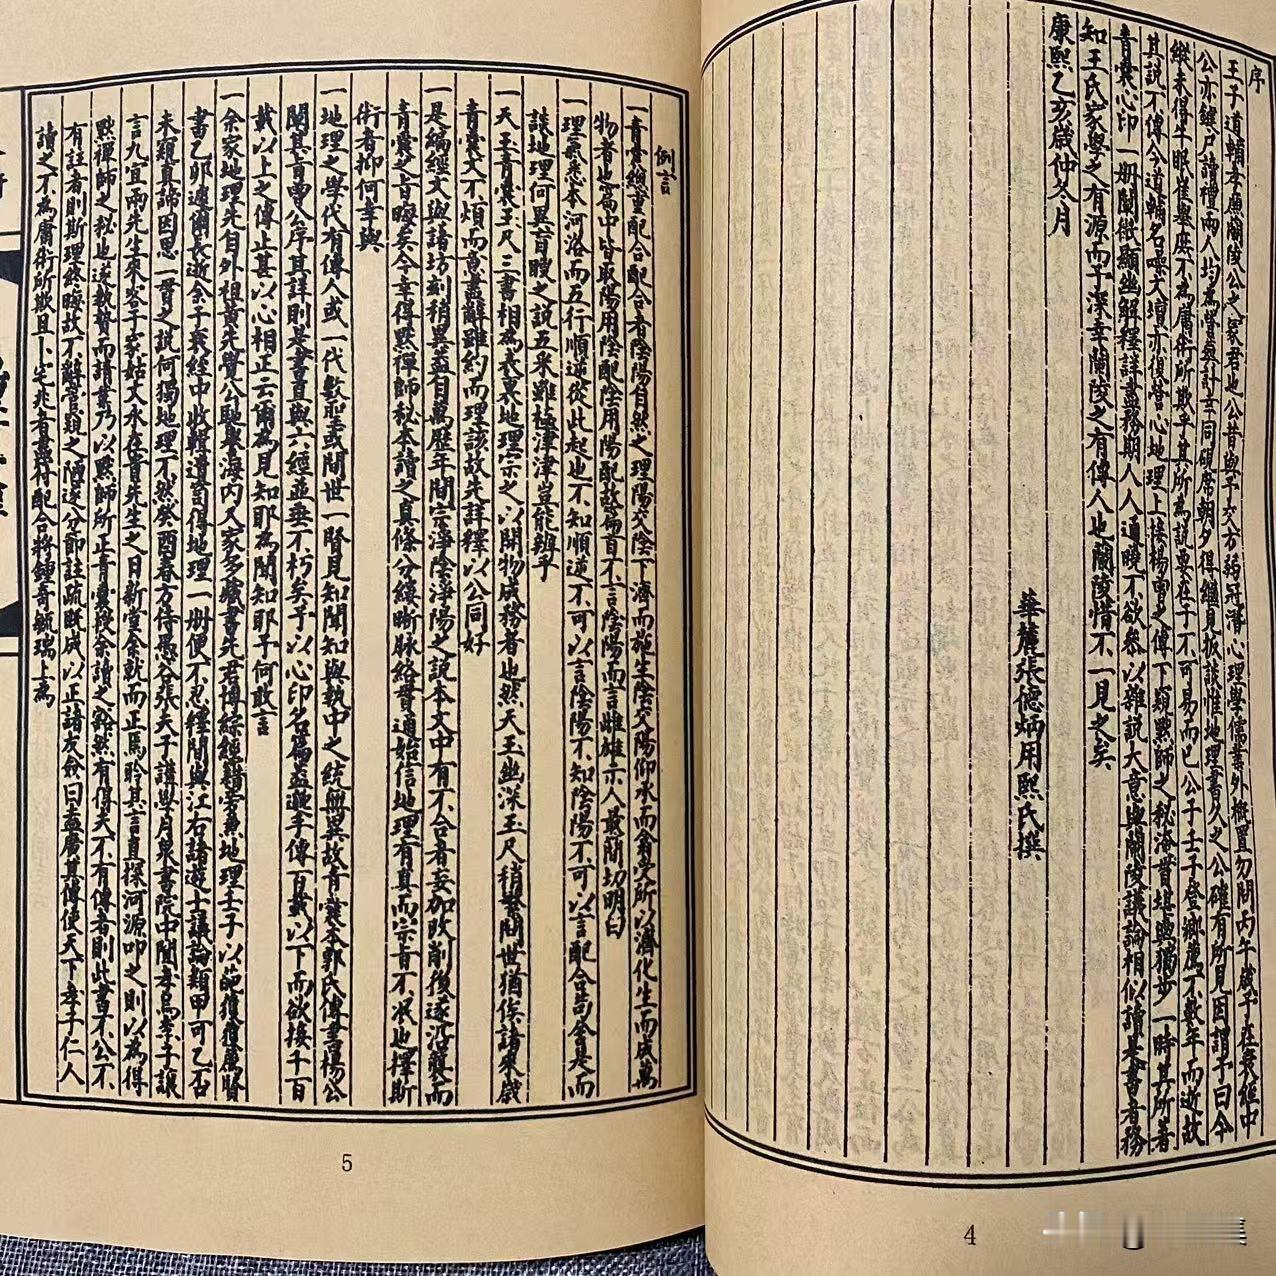 序
王子道輔孝廉蘭陵公之冢君也公昔與予交方弱冠潛心理學儒業外概置勿問丙午歲予在衰絰中
公亦纏戶讀禮兩人均為營窆計玄同硯席朝夕得繼見扳談惟地理書久之公確有所見因謂予曰今
縱未得生眠崔舉庶不為庸術所欺乎其所為說要在于不可易而已公子壬子登鄉薦不數年而逝故
其說不傳今道輔名噪文壇亦復營心地理上接楊曾之傳下窺默師之秘洵昔堪輿獨步一時其所著
青囊心印一册闡微顯幽解釋詳盡務期人人通曉不欲叅以雜說大意與蘭陵議論相似讀是書者務
知王氏家學之有源而予深幸蘭陵之有傳人也蘭陵惜不一見之矣
康熙乙亥歲仲冬月
華麓張德炳用熙氏撰
4
例言
一青囊總重配合配合者陰陽自然之理陽交陰下濟而施生陰交陽仰承而翕受所以濟化生而成萬
物者也篇中皆取陽用陰配陰用陽配故篇首不言陰陽而言雌雄示人最關切明白
一理氣悉本河洛而五行順逆從此起也不知順逆不可以言陰陽不知陰陽不可以言配合苟舍是而
談地理何異盲瞍之說五采雖極津津豈能辨乎
一天玉青囊玉尺三書相為表裏地理宗之以開物成務者也然天玉幽深玉尺稍繁間世猶俟諸來茲
青囊文不煩而意盡辭雖約而理該故先詳釋以公同好
一是編經文與諸坊刻稍異蓋自萬歷年間宗淨陰淨陽之說本文中有不合者妄加改削後遂沿襲而
青囊之旨晦矣今幸得默禪師秘本讀之真條分縷晰脉絡貫通始信地理有真而宗旨不泯也擇斯
術者抑何幸與
一地理之學代有傳人或一代數聖或間世一賢見知聞知與執中之統無異故青囊本郭氏傳書楊公
闡其旨曾公序其詳則是書直與六經並垂不朽矣予以心印名篇蓋遜于傳百載以下而欲接千百
載以上之傳止甚以心相正云爾為見知耶為聞知耶予何敢言
一余家地理先自外祖黃先覺公馳譽海内人家多藏書先君博綜經籍旁兼地理壬子以葩獲獲薦賢
書乙卯遽爾長逝余于衰絰中收輯遺笥得地理一册便不忍釋間與江右諸遊士議論類甲可乙否
未窺真諦因思一貫之說何獨地理不然癸酉春方侍懋谷張夫子講學月泉書院中聞孝烏李子讓
言九宜兩先生來客于家姑丈永在青先生之日新堂余就而正焉聆其言直探河源叩之則以為得
默禪師之秘也遂執贄而請業乃以默師所正青囊授余讀之豁然有得夫不有傳者則此書不公不
有註者則斯理終晦故不辭管窺之陋遂分節註疏既成以正諸友僉曰盍廣其傳使天下孝子仁人
讀之不為庸術所欺且卜宅兆者盡得配合將鍾奇毓瑞上為
5